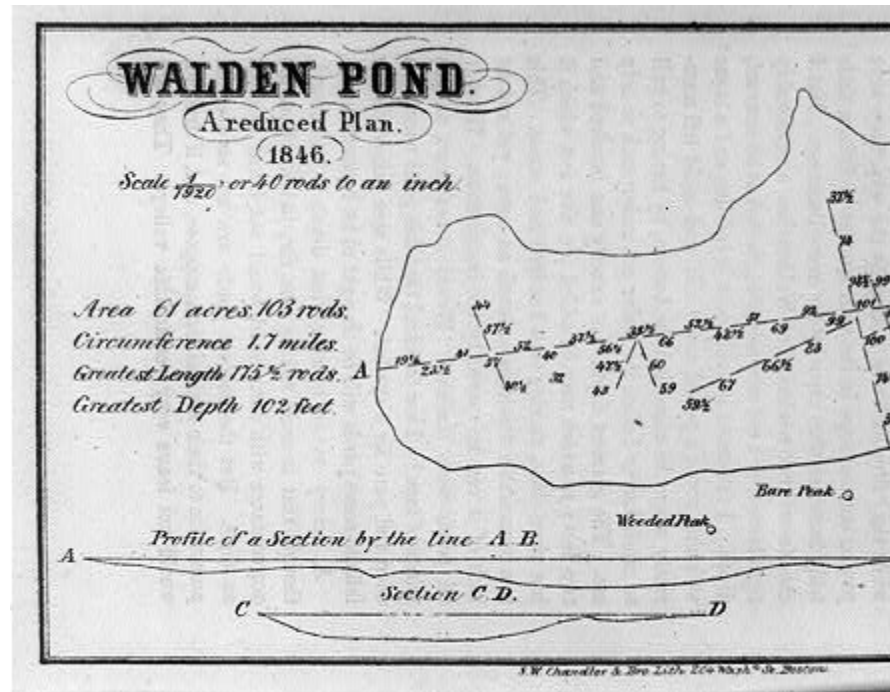 WALDEN POND.
A reduced Plan.
1846.
Scale 1/1920, or 40 rods to an inch.
Area 61 acres 103 rods.
Circumference 1.7 miles.
Greatest Length 175½ rods.
Greatest Depth 102 feet.
A
19¼ 41 37 52 40 37½ 38½ 66 52½ 42½ 51 69 92 99 101
25½
44
57½
40½
32
56½
47½
43
60
59
58½ 67 66½ 23
31½
74
100
Bare Peak
Wooded Peak
Profile of a Section by the line A B.
A
Section C D.
C D
S.W. Chandler & Bro. Lith. 204 Wash.n St. Boston.